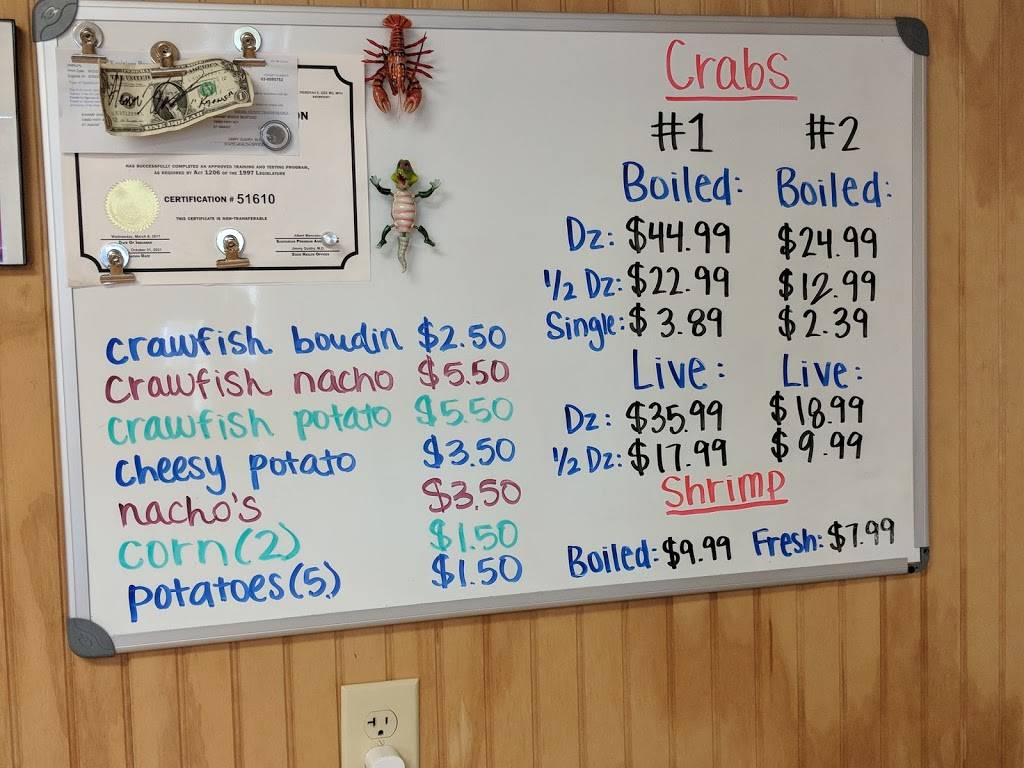 HAS SUCCESSFULLY COMPLETED AN APPROVED TRAINING AND TESTING PROGRAM,
AS REQUIRED BY ACT 1206 OF THE 1997 LEGISLATURE
CERTIFICATION # 51610
THIS CERTIFICATE IS NON-TRANSFERABLE
crawfish boudin $2.50
crawfish nacho $5.50
crawfish potato $5.50
cheesy potato $3.50
nacho's $3.50
corn(2) $1.50
potatoes(5) $1.50
Crabs
#1 #2
Boiled: Boiled:
Dz: $44.99 $24.99
1/2 Dz: $22.99 $12.99
Single: $3.89 $2.39
Live: Live:
Dz: $35.99 $18.99
1/2 Dz: $17.99 $9.99
Shrimp
Boiled: $9.99 Fresh: $7.99